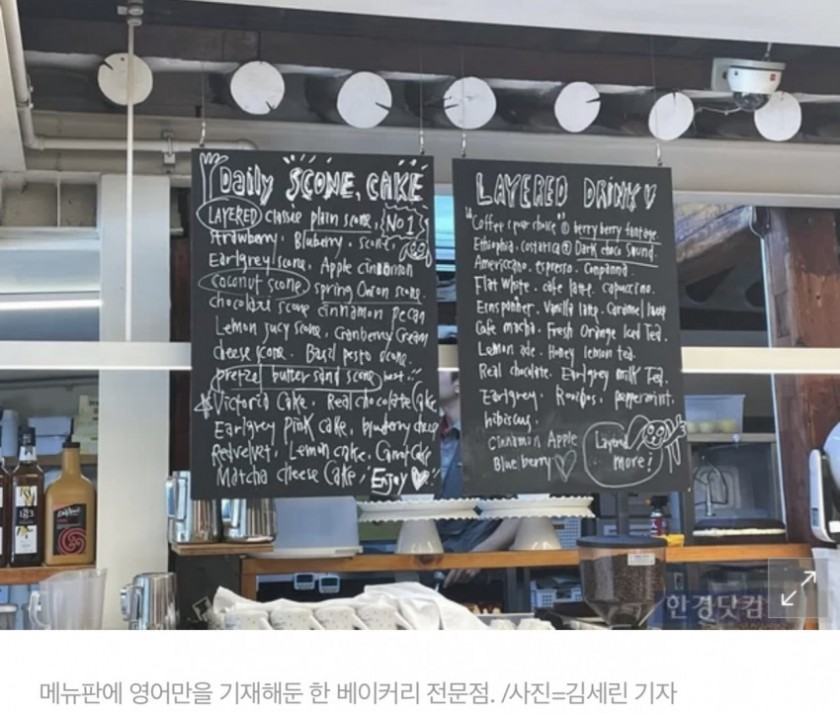 Daily SCONE, CAKE
LAYERED classic plain scone, No 1
strawberry. Bluberry. scone
Earlgrey scone, Apple cinnamon
coconut scone spring Onion scone.
chocolart scone cinnamon pecan
Lemon jucy scone, Cranberry Cream
cheese scone. Basil pesto scone.
pretzel butter sand scone best!!
Victoria Cake. Real chocolate Cake
Earlgrey pink cake, blueberry cheese
Redvelvet. Lemon cake. Carrot Cake
Matcha cheese Cake, Enjoy
LAYERED DRINK
"Coffee (your choice" ① berry berry
Ethiophia. costarica ② Dark choco Sound.
Americcano. espresso. Conpanna.
Flat White. cafe latte. capuccino.
Einspenner. Vanilla latte. Caramel latte
Cafe macha. Fresh Orange Iced Tea.
Lemon ade. Honey lemon tea.
Real chocolate. Earlgrey milk Tea.
Earlgrey. Rooibos. peppermint.
hibiscus.
Cinnamon Apple
Blue berry
Layered
more!
1883
DaVinci
한경닷컴
메뉴판에 영어만을 기재해둔 한 베이커리 전문점. /사진=김세린 기자